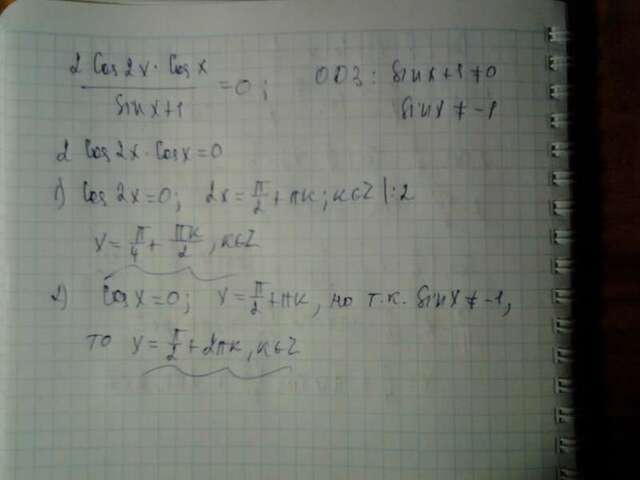 2 Cos2x · Cosx / sinx+1 = 0; ОДЗ: sinx+1≠0
sinx ≠ -1
2 Cos2x · Cosx = 0
1) Cos2x=0; 2x = π/2 + πk; k∈Z |:2
x = π/4 + πk/2, k∈Z
2) Cosx=0; x = π/2 + πk, но т.к. sinx ≠ -1,
то x = π/2 + 2πk, k∈Z